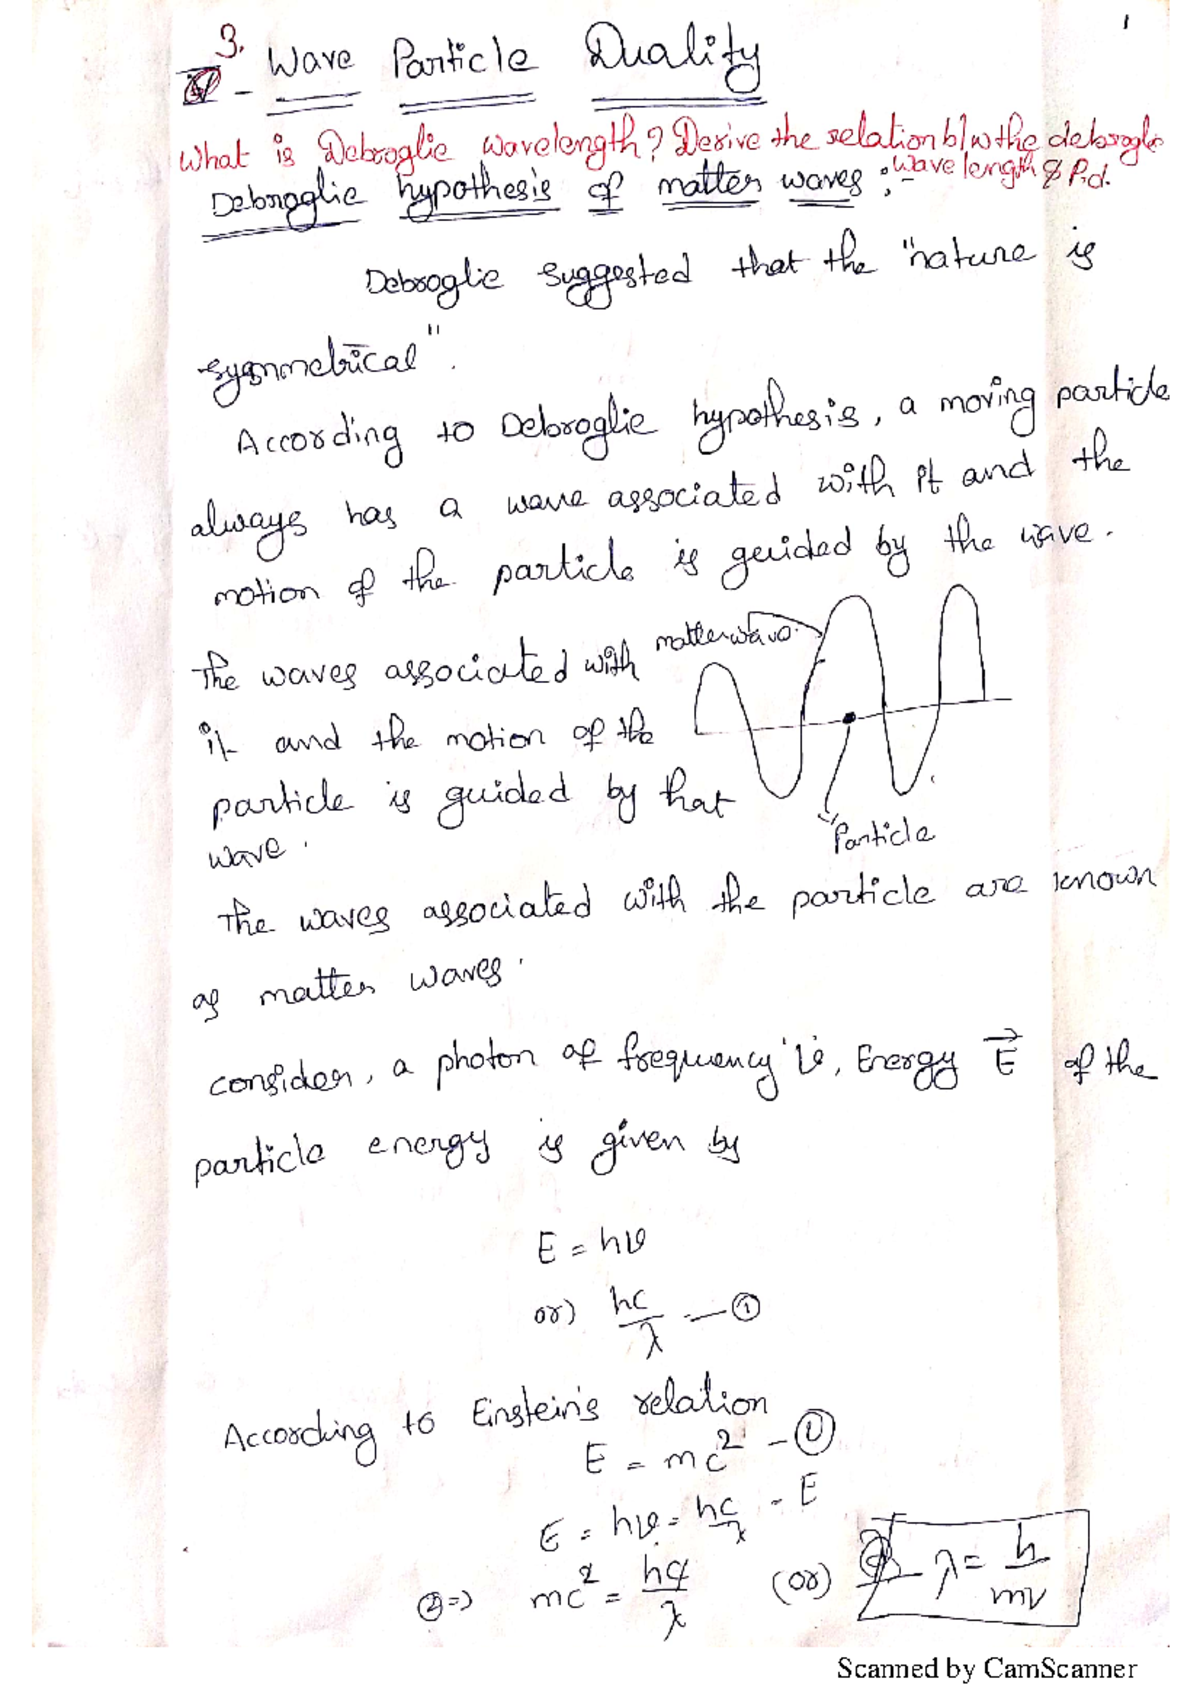 1
3. Wave Particle Duality
What is Debroglie wavelength? Derive the relation b/w the debroglie
wavelength & P.d.
Debroglie hypothesis of matter waves :-
Debroglie suggested that the "nature is
symmetrical".
According to Debroglie hypothesis, a moving particle
always has a wave associated with it and the
motion of the particle is guided by the wave.
The waves associated with
it and the motion of the
particle is guided by that
wave.
matter wave
Particle
The waves associated with the particle are known
as matter waves.
consider, a photon of frequency 'ν', Energy E⃗ of the
particle energy is given by
E = hν
or) hc/λ — ①
According to Einstein's relation
E = mc² - ⑪
E = hν = hc/λ - E
②=> mc² = hc/λ (or) λ = h/mv
Scanned by CamScanner